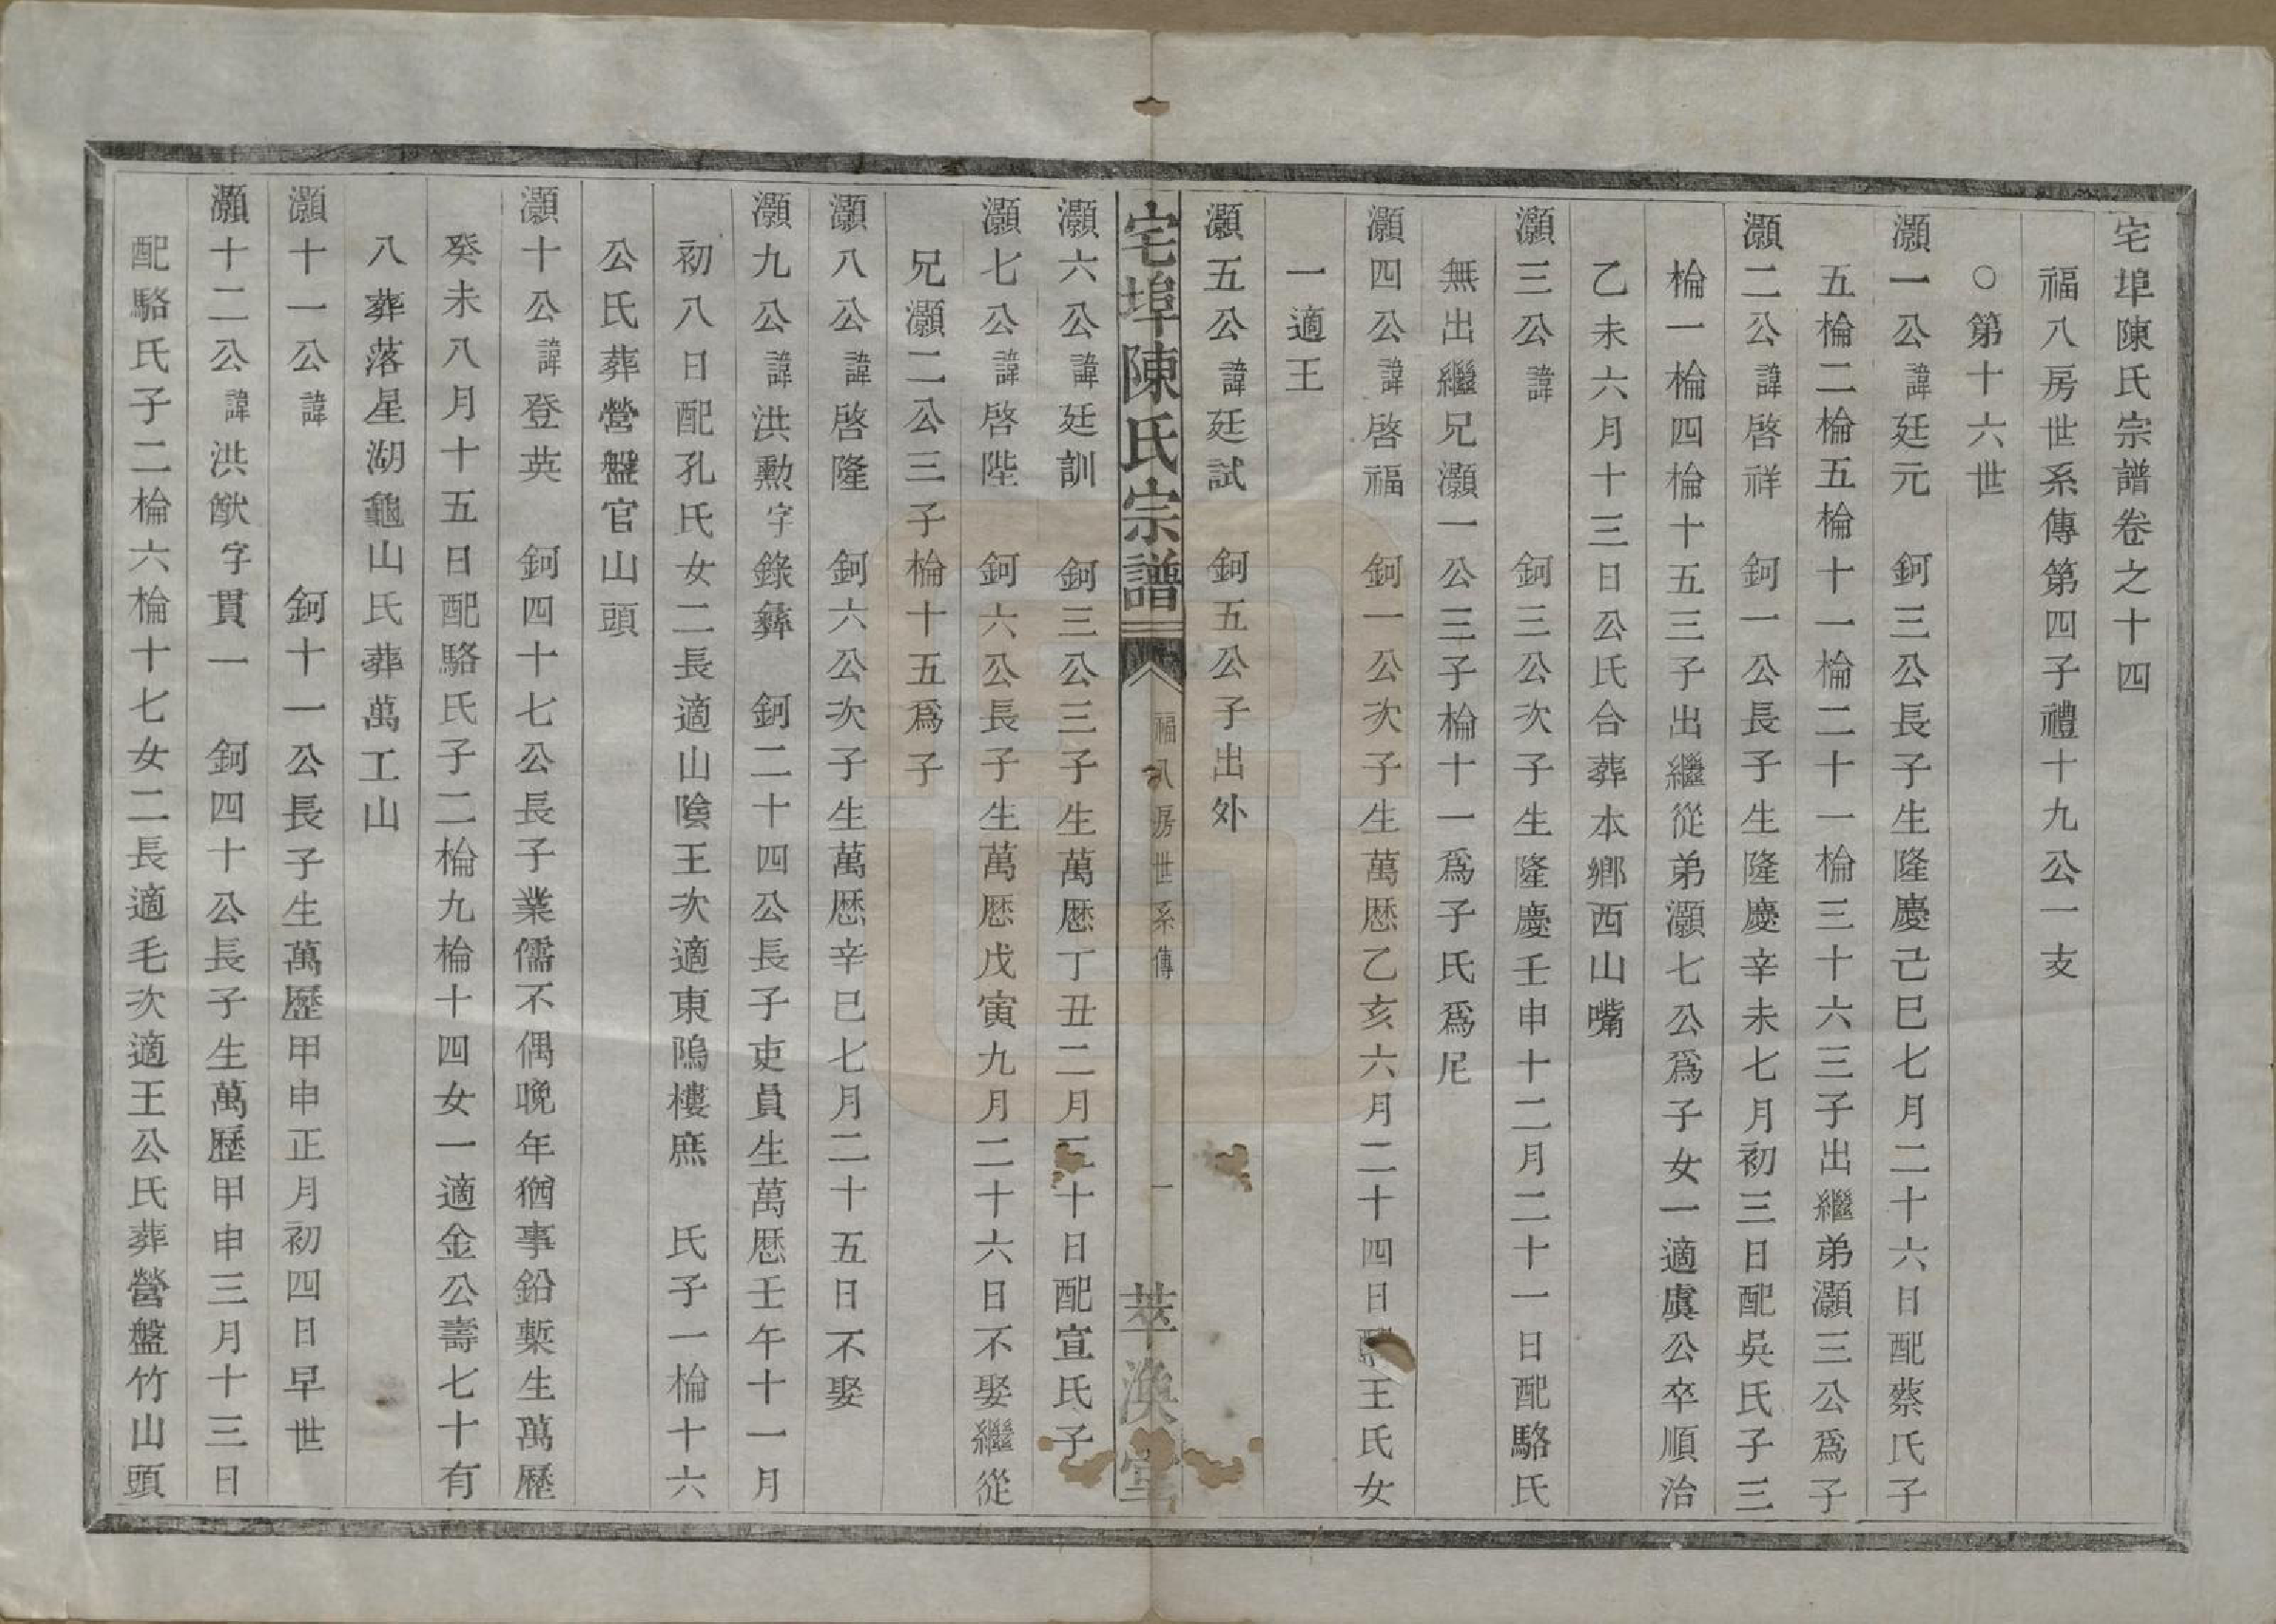 宅埠陳氏宗譜卷之十四
福八房世系傳第四子禮十九公一支
○第十六世
灝一公諱廷元 鈳三公長子生隆慶己巳七月二十六日配蔡氏子
五棆二棆五棆十一棆二十一棆三十六三子出繼弟灝三公爲子
灝二公諱啓祥 鈳一公長子生隆慶辛未七月初三日配吳氏子三
棆一棆四棆十五三子出繼從弟灝七公爲子女一適虞公卒順治
乙未六月十三日公氏合葬本鄉西山嘴
灝三公諱 鈳三公次子生隆慶壬申十二月二十一日配駱氏
無出繼兄灝一公三子棆十一爲子氏爲尼
灝四公諱啓福 鈳一公次子生萬厯乙亥六月二十四日配王氏女
一適王
灝五公諱廷試 鈳五公子出外
宅埠陳氏宗譜
福八房世系傳
一
萃渙堂
灝六公諱廷訓 鈳三公三子生萬厯丁丑二月十日配宣氏子
灝七公諱啓陛 鈳六公長子生萬厯戊寅九月二十六日不娶繼從
兄灝二公三子棆十五爲子
灝八公諱啓隆 鈳六公次子生萬厯辛巳七月二十五日不娶
灝九公諱洪勳字錄彝 鈳二十四公長子吏員生萬厯壬午十一月
初八日配孔氏女二長適山陰王次適東隖樓庶 氏子一棆十六
公氏葬營盤官山頭
灝十公諱登英 鈳四十七公長子業儒不偶晚年猶事鉛槧生萬歷
癸未八月十五日配駱氏子二棆九棆十四女一適金公壽七十有
八葬落星湖龜山氏葬萬工山
灝十一公諱 鈳十一公長子生萬歷甲申正月初四日早世
灝十二公諱洪猷字貫一 鈳四十公長子生萬歷甲申三月十三日
配駱氏子二棆六棆十七女二長適毛次適王公氏葬營盤竹山頭